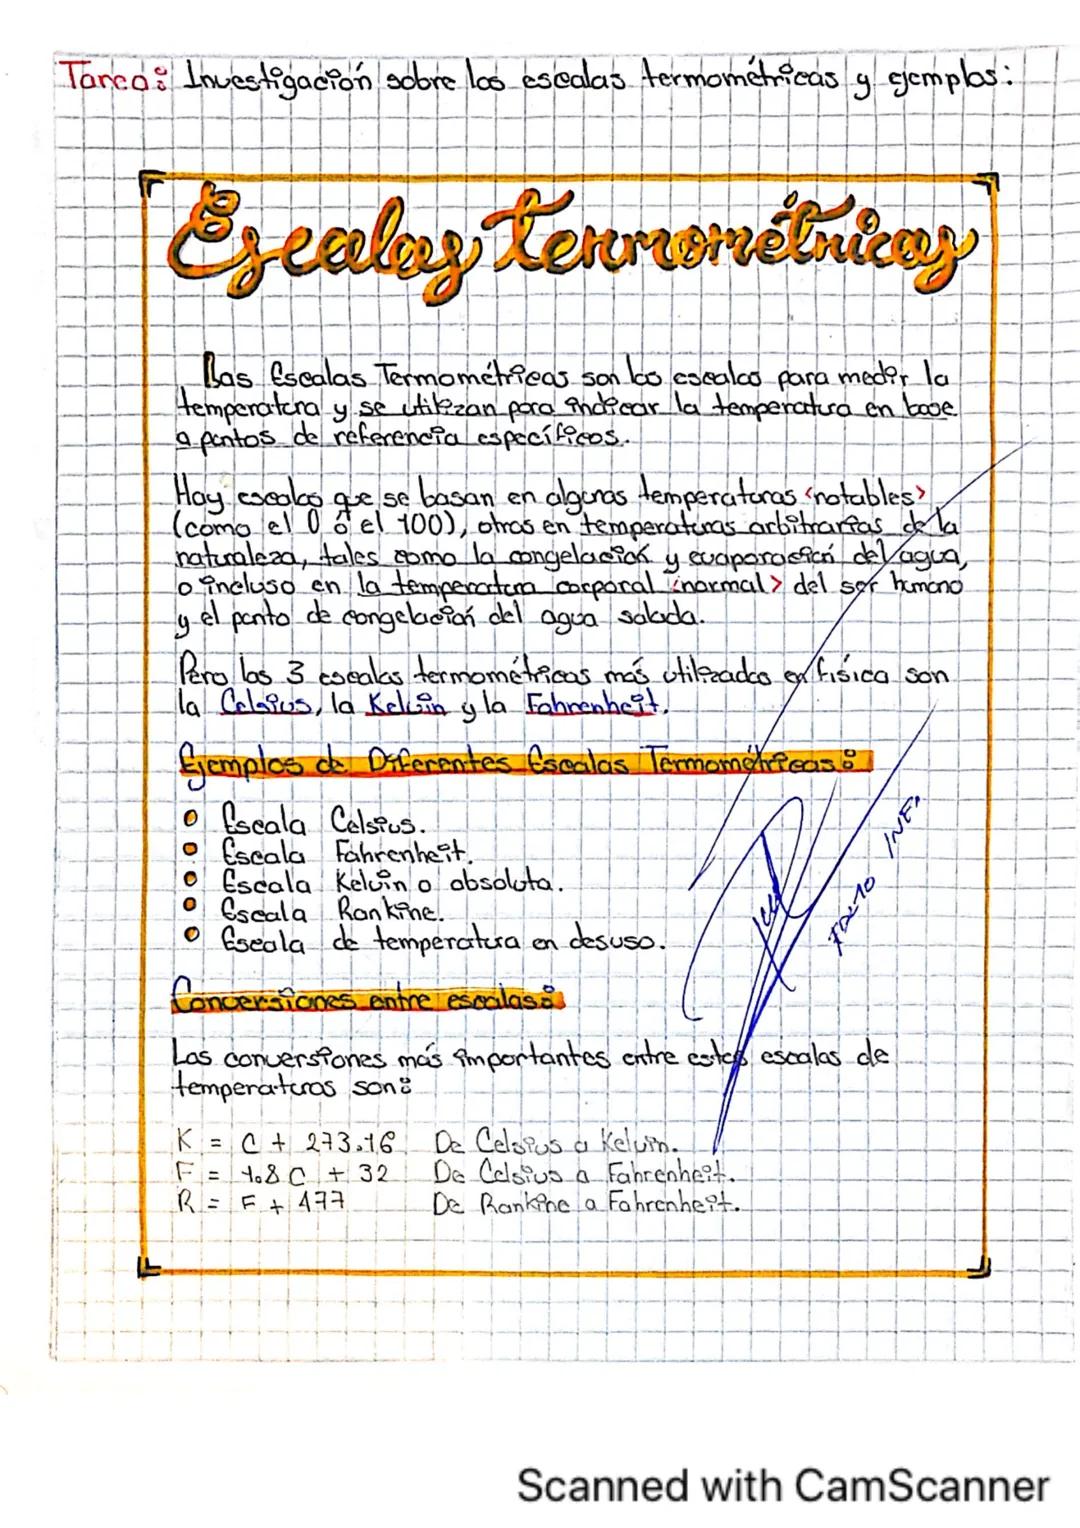 Tarea: Investigación sobre las escalas termométricas y ejemplos:
Escalas Termométricas
Las Escalas Termométricas son las escalas para medir la
temperatura y se utilizan para indicar la temperatura en base
a puntos de referencia específicos.
Hay escalas que se basan en algunas temperaturas <notables>
(como el 0 ó el 100), otras en temperaturas arbitrarias de la
naturaleza, tales como la congelación y evaporación del agua,
o incluso en la temperatura corporal <normal> del ser humano
y el punto de congelación del agua salada.
Pero las 3 escalas termométricas más utilizadas en física son
la Celsius, la Kelvin y la Fahrenheit.
Ejemplos de Diferentes Escalas Termométricas:
• Escala Celsius.
• Escala Fahrenheit.
• Escala Kelvin o absoluta.
• Escala Rankine.
• Escala de temperatura en desuso.
INF.
Conversiones entre escalas:
Las conversiones más importantes entre estas escalas de
temperaturas son:
K = C + 273.16 De Celsius a Kelvin.
F = 1.8 C + 32 De Celsius a Fahrenheit.
R = F + 477 De Rankine a Fahrenheit.
Scanned with CamScanner